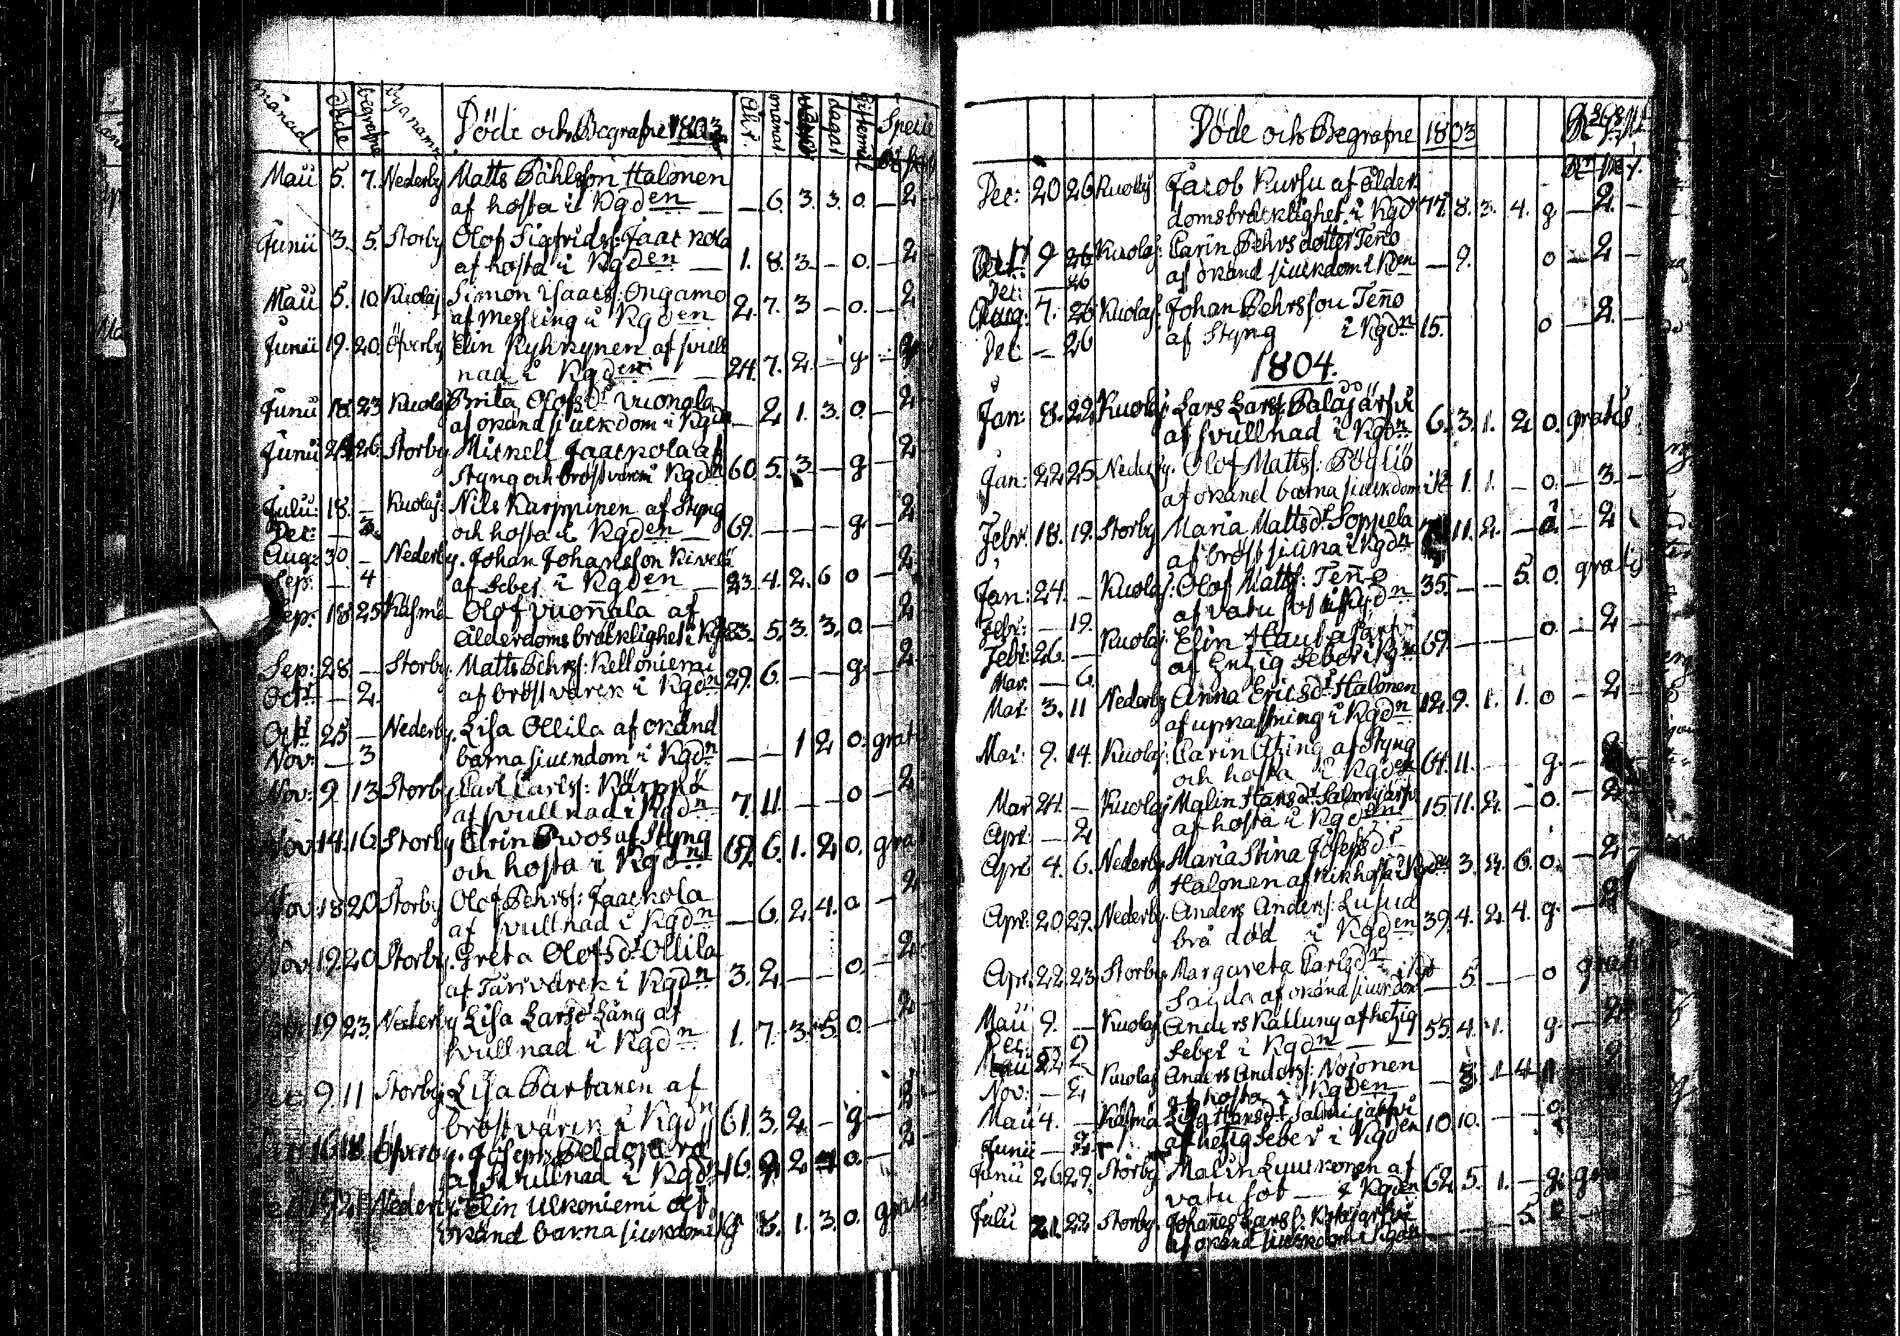 månad Döde begrafne byanamn Döde och Begrafne 1803 Åhr. månat dagar
Maii 5. 7. Nederby Matts Påhlsson Halonen
af hosta i Kgden — — 6. 3. 3. o. — 2
Junii 3. 5. Storby Olof Sigfridss: Jaackola
af hosta i Kgden — 1. 8. 3. — o. — 2
Maii 5. 10. Kuolaj Simon Isaacs: Ongamo
af Messling i Kgden 2. 7. 3 — o. — 2
Junii 19. 20. Öfverby Elin Kyhkynen af svull
nad i Kgden — 24. 7. 2. — g. —
Junii 18. 23. Kuolaj Brita Olofsdr Vuonala
af okänd siukdom i Kgdn — 2. 1. 3. o. — 2
Junii 24. 26. Storby Mickell Jaackola af
Styng och bröstvärk i Kgdn 60. 5. 3. — g — 2
Julii: 18. — Kuolaj: Nils Karppinen af Styng
Dec: — och hosta i Kgden — 69. — — — g. — 2
Aug: 30 — Nederby. Johan Johansson Kivelä
Sep: — 4 af feber i Kgden — 23. 4. 2. 6 o — 2
Sep: 18 25 Olof Vuonnala af
Ålderdomsbräcklighet i Kgd 83. 5. 3. 3. o. — 2
Sep: 28 — Storby. Matts Pehrs: Kelloniemi
Octr — 2. af bröstvärck i Kgdn 29. 6. — — g. — 2
Octr 25 — Nederby. Lisa Ollila af okänd
Nov: — 3 barnasiuckdom i Kgdn — — 1 2 o. gratis
Nov: 9 13 Storby Carl Carlss: Kärppä
af svullnad i Kgdn 7. 11. — — o — 2
Nov. 14. 16. Storby af Styng
och hosta i Kgdn 6. 1. 2. o. gra
Nov. 18 20 Storby Olof Pehrss: Jaackola
af svullnad i Kgdn — 6. 2. 4. o — 2
Nov 19. 20 Storby. Greta Olofsdr Ollila
af Tarrvärck i Kgdn 3. 2. — — o. — 2
19 23. Nederby Lisa Larsdr Lång af
svullnad i Kgdn 1. 7. 3. 5. o. — 2
9. 11 Storby: Lisa Partanen af
bröstvärck i Kgdn 61. 3. 2. — g —
Öfverby. Joseph Peldovara
af svullnad i Kgdn 16. 2 o. — 2
Nederby Elin Ulkoniemi af
okänd barnasiukdom i 1. 3. o. gratis
Döde och Begrafne 1803
Dec: 20 26 Kuolaj Jacob Kursu af Ålder
domsbräcklighet. i Kgd 77. 8. 3. 4. g. — 2.
9 26 Kuolaj: Carin Pehrsdotter Tenno
Dec: — 26 af okänd siukdom i Kden — 9. o — 2
Aug: 7. 26 Kuolaj: Johan Pehrsson Tenno
Dec — 26 af Styng i Kgdn 15. o — 2.
1804.
Jan: 8. 22. Kuolaj: Lars Larss: Palojärfvi
af svullnad i Kgdn 6. 3. 1. 2 o. gratis
Jan: 22 25 Nederby. Olof Mattss:
af okänd barnasiuckdom i K 1. 1. — o. — 3 —
Febr. 18. 19. Storby Maria Mattsdr Soppela
af bröstsiuka i Kgdn 11. 2. — — 2
Jan: 24. — Kuolaj: Olof Mattss: Tenno
Febr: — 19. af vatu sot i Kgdn 35. — — 5. o. gratis
Febr: 26. — Kuolaj. Elin
Mar. — 6. af hetzig feber i Kgdn 69. — — o. — 2
Mar: 3. 11 Nederby Anna Ericsdr Halonen
af upkastning i Kgdn 12. 9. 1. 1. o — 2
Mar: 9. 14. Kuolaj: Carin Ating af Styng
och hosta i Kgden 64. 11. g. —
Mar 24. — Kuolaj Malin Hansdr Salmijärfvi
Apr: — 2 af hosta i Kgden 15. 11. 2. — o. — 2
Apr. 4. 6. Nederby Maria Stina Josephsdr
Halonen af kikhosta i Kgdn 3. 2. 6 o. — 2 —
Apr: 20 29. Nederby Anders Anders: Lusud
brå död i Kgden 39. 4. 2. 4. g. — 2
Apr. 22. 23 Storby Margareta Carlsdr
af okänd siukdom — 5. — o gratis
Maii 9. — Kuolaj Anders Kallung af hetzig
feber i Kgdn — 55. 4. 1. g. — 2
Kuolaj Anders Anders: Nojonen
Nov: — 2 af hosta i Kgden —
Maii 4. — Lisa Hansdr Salmijärfvi
Junii — af hetzig feber i Kgden 10. 10. — — o.
Junii 26. 29. Storby Malin Lyyckonen af
vatu sot — i Kgden 62. 5. 1. — g. gra
Julii 21. 22 Storby. Johannes Larss:
af okänd siukdom i Kgdn — — — 5.